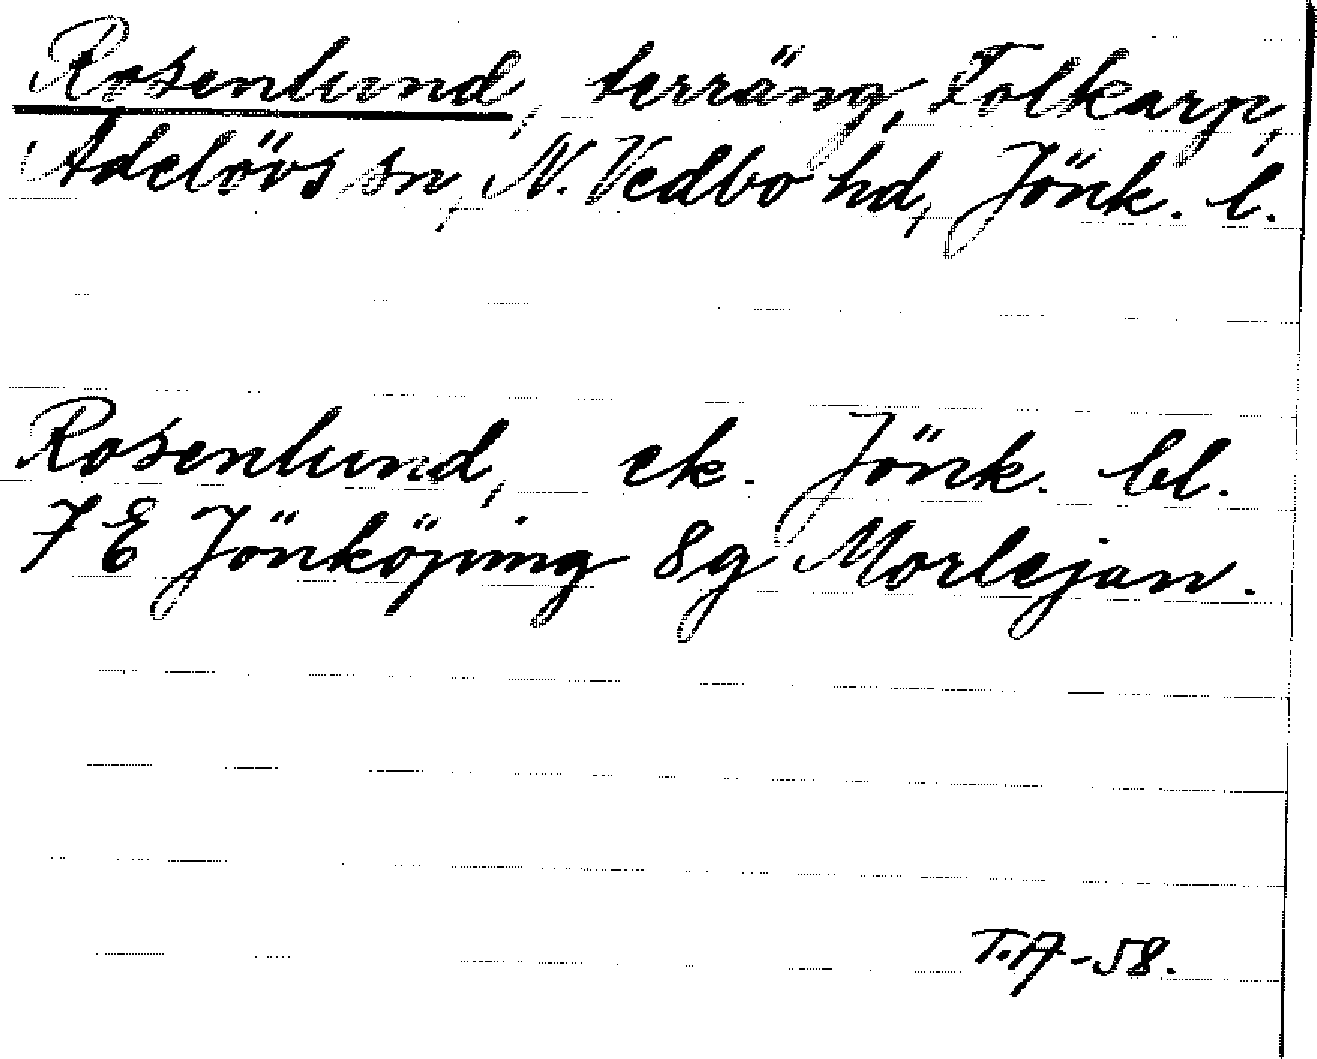 Rosenlund, terräng, Folkarp,
Adelövs sn, N. Vedbo hd, Jönk. l.
Rosenlund, ek. Jönk. bl.
7 E Jönköping 8g Morlejan.
T.A-58.